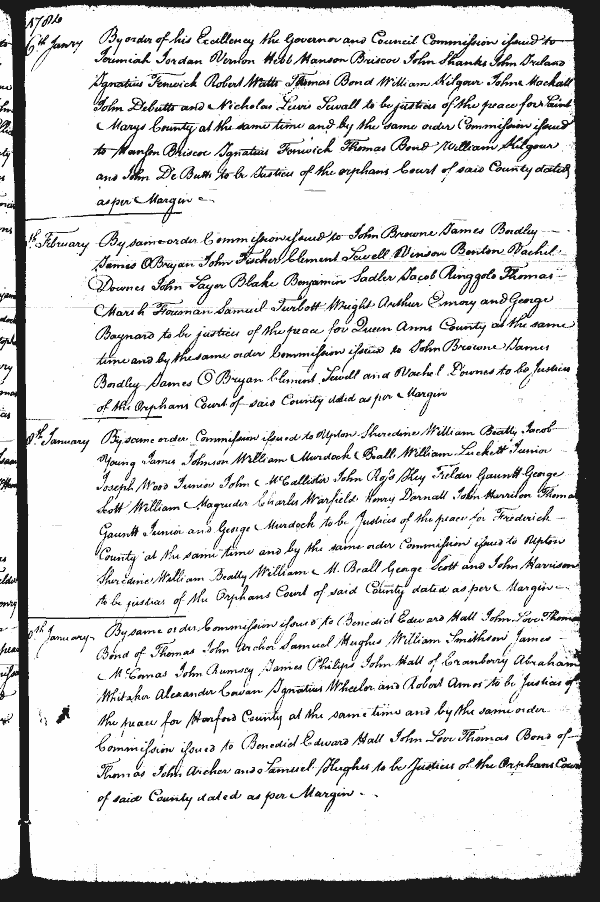 1786
6th Janry By order of his Excellency the Governor and Council Commission issued to
Jeremiah Jordan Vernon Hebb Hanson Briscoe John Shanks John Ireland
Ignatius Fenwick Robert Watts Thomas Bond William Kilgour John Mackall
John Debutts and Nicholas Lewis Sewall to be justices of the peace for Saint
Marys County at the same time and by the same order Commission issued
to Hanson Briscoe Ignatius Fenwick Thomas Bond William Kilgour
and John De Butts to be Justices of the orphans Court of said County dated
as per Margin
th February By same order Commission issued to John Browne James Bordley
James OBryan John Fischer Clement Sewell Vinson Benton Vachel
Downes John Sayer Blake Benjamin Sadler Jacob Ringgold Thomas
Marsh Foreman Samuel Turbott Wright Arthur Emory and George
Baynard to be justices of the peace for Queen Anns County at the same
time and by the same order Commission issued to John Browne James
Bordley James O Bryan Clement Sewell and Vachel Downes to be Justices
of the Orphans Court of said County dated as per Margin
8th January By same order Commission issued to Upton Sheredine William Beatty Jacob
Young James Johnson William Murdock Beall William Luckett Junior
Joseph Wood Junior John McCallister John Ross Key Fielder Gauntt George
Scott William Magruder Charles Warfield Henry Darnall John Harrison Thomas
Gauntt Junior and George Murdock to be Justices of the peace for Frederick
County at the same time and by the same order Commission issued to Upton
Sheredine William Beatty William M. Beall George Scott and John Harrison
to be justices of the Orphans Court of said County dated as per Margin
th January By same order Commission issued to Benedict Edward Hall John Love Thomas
Bond of Thomas John Archer Samuel Hughes William Smithson James
McComas John Rumsey James Philips John Hall of Cranberry Abraham
Whitaker Alexander Cowan Ignatius Wheeler and Robert Amos to be Justices of
the peace for Harford County at the same time and by the same order
Commission issued to Benedict Edward Hall John Love Thomas Bond of
Thomas John Archer and Samuel Hughes to be Justices of the Orphans Court
of said County dated as per Margin